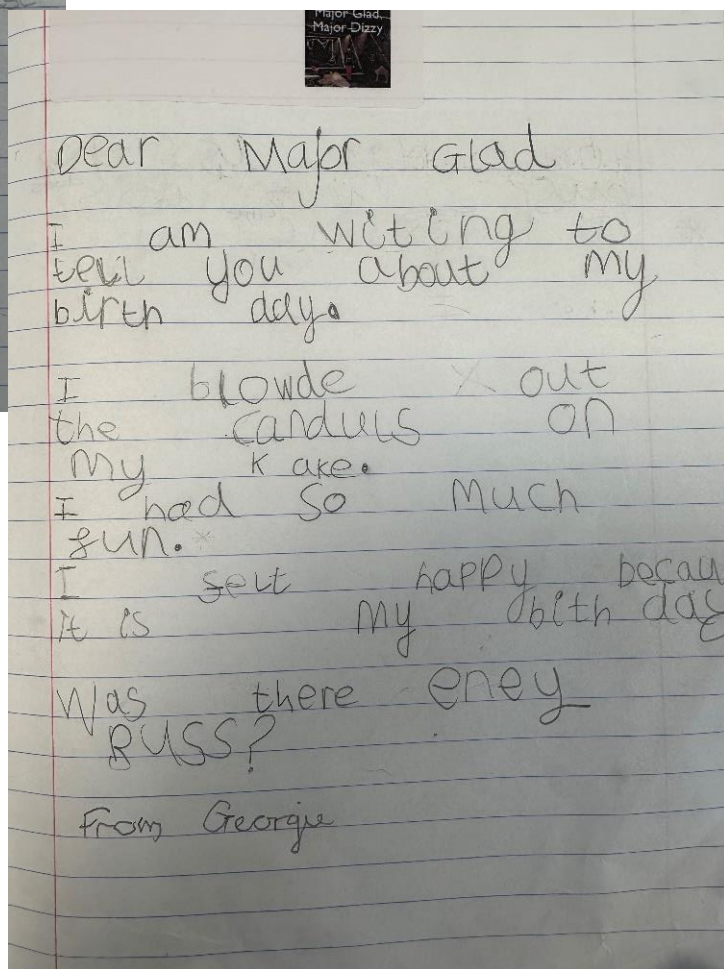 Major Glad,
Major Dizzy
Dear Major Glad
I am witing to
tell you about my
birth day.
I blowde out
the canduls on
my kake.
I had so much
fun.
I felt happy becau
it is my bith day
Was there eney
BUSS?
From Georgie